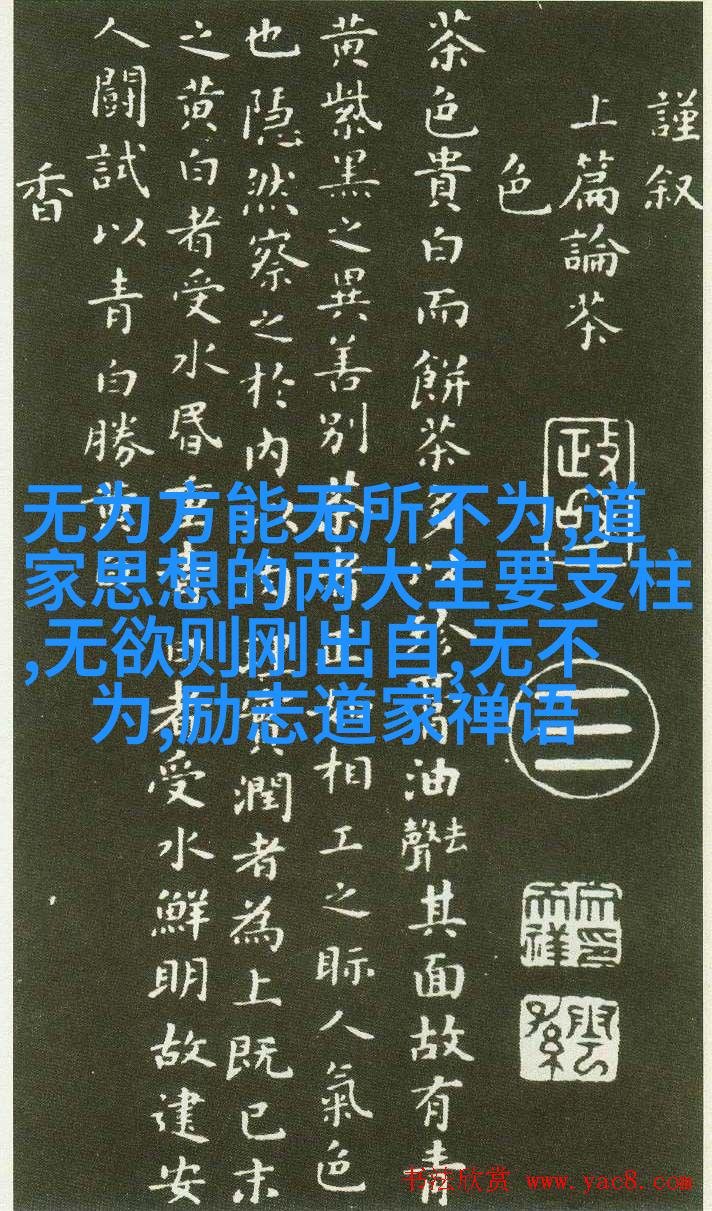 謹叙
上篇論茶
色
茶色貴白而餅茶多以珍膏油去聲其面故有青
黄紫黑之異善别茶者正如相工之眎人氣色
也隱然察之於内以肉理實潤者為上既已末
之黄白者受水昏重青白者受水鮮明故建安
人鬪試以青白勝黄白
香
无为方能无所不为,道
家思想的两大主要支柱
,无欲则刚出自,无不
为,励志道家禅语
政和
三
书法欣赏 www.yac8.com